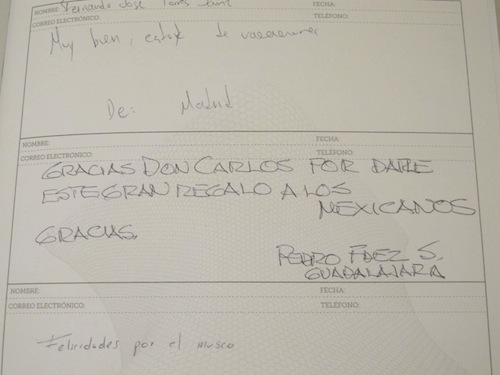 NOMBRE: Fernando José Torres FECHA:
CORREO ELECTRÓNICO: TELÉFONO:
Muy bien, de vacaciones
De: Madrid
NOMBRE: FECHA:
CORREO ELECTRÓNICO: TELÉFONO:
GRACIAS DON CARLOS POR DARLE
ESTE GRAN REGALO A LOS
MEXICANOS
GRACIAS.
PEDRO FAEZ S.
GUADALAJARA
NOMBRE: FECHA:
CORREO ELECTRÓNICO: TELÉFONO:
Felicidades por el museo